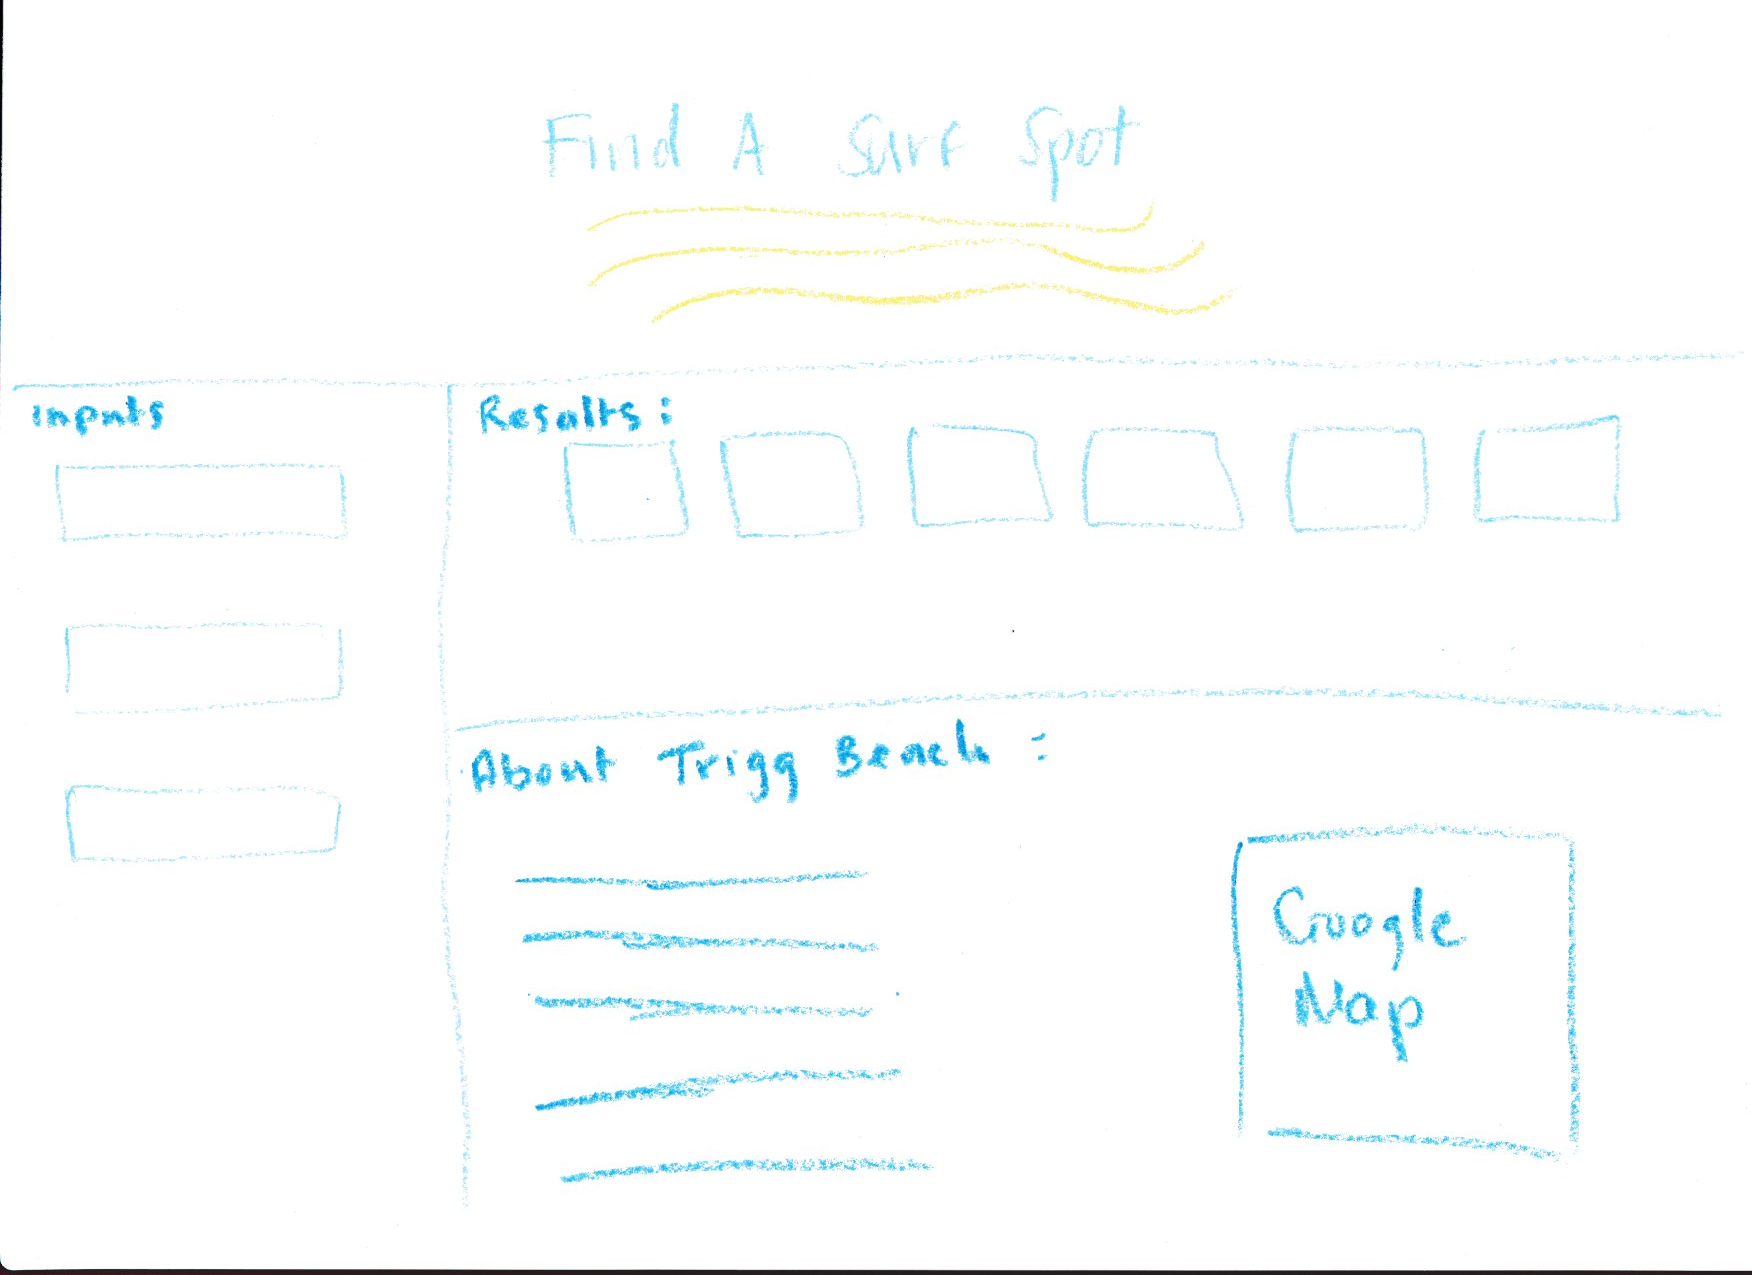 Find A Surf Spot
Inputs
Results:
About Trigg Beach:
Google
Map